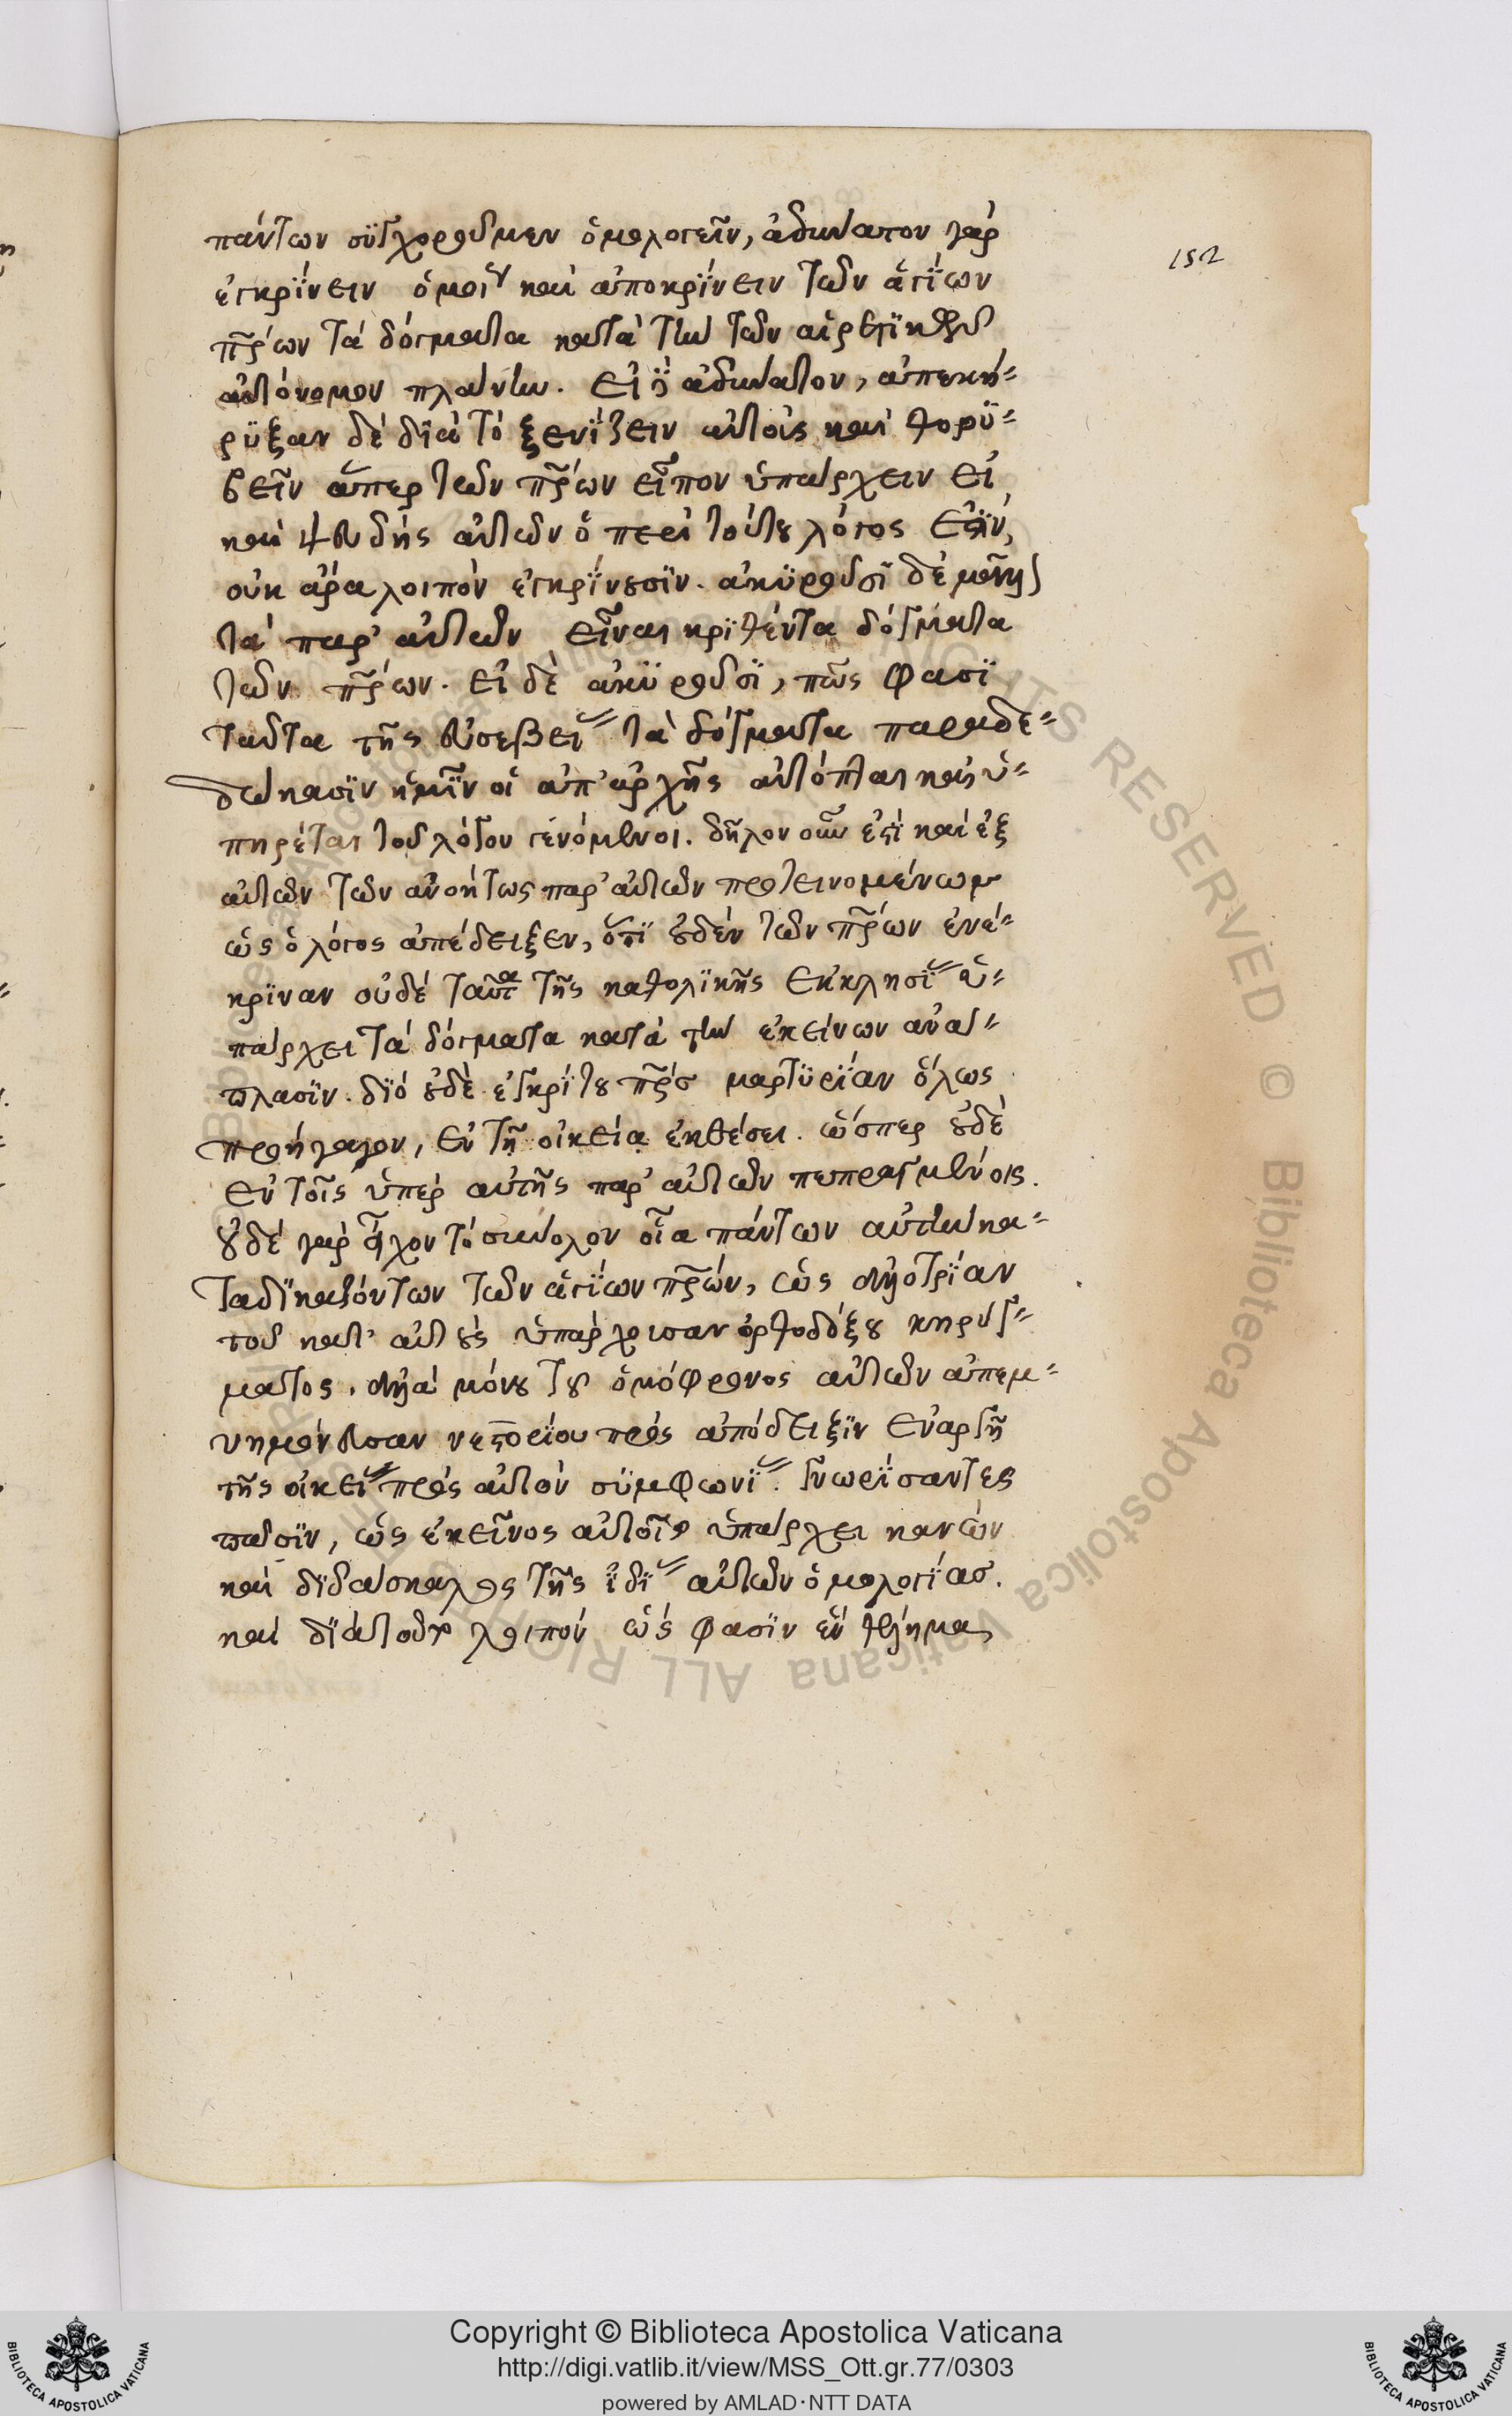 πάντων συγχοροῦμεν ὁμολογεῖν, ἀδύνατον γάρ
152
ἐγκρίνειν ὁμοῦ καὶ ἀποκρίνειν τῶν ἁγίων
πρ̅ων τὰ δόγματα κατὰ τὴν τῶν αἱρετικῶν
αὐτόνομον πλάνην. εἰ δὲ ἀδύνατον, ἀπεκή-
ρυξαν δὲ διὰ τὸ ξενίζειν αὐτοὺς καὶ θορυ-
βεῖν ἅπερ τῶν πρ̅ων εἶπον ὑπάρχειν εἰ
καὶ ψευδὴς αὐτῶν ὁ περὶ τούτου λόγος ἐστίν,
οὐκ ἄρα λοιπὸν ἐγκρίνουσιν. ἀκυροῦσι δὲ
τὰ παρ' αὐτῶν εἶναι κριθέντα δόγματα
τῶν πρ̅ων. εἰ δὲ ἀκυροῦσι, πῶς φασὶ
ταῦτα τῆς εὐσεβείας τὰ δόγματα παραδε-
δώκασιν ἡμῖν οἱ ἀπ' ἀρχῆς αὐτόπται καὶ ὑ-
πηρέται τοῦ λόγου γενόμενοι. δῆλον οὖν ἐστὶ καὶ ἐξ
αὐτῶν τῶν ἀνοήτως παρ' αὐτῶν προτεινομένων
ὡς ὁ λόγος ἀπέδειξεν, ὅτι οὐδὲν τῶν πρ̅ων ἐνέ-
κριναν οὐδὲ ταῦτα τῆς καθολικῆς ἐκκλησίας ὑ-
πάρχει τὰ δόγματα κατὰ τὴν ἐκείνων ἀνά-
πλασιν. διὸ οὐδὲ ἐγκρίτου πρ̅σ μαρτυρίαν ὅλως
προήγαγον, ἐν τῇ οἰκείᾳ ἐκθέσει. ὥσπερ οὐδὲ
ἐν τοῖς ὑπὲρ αὐτῆς παρ' αὐτῶν πεπραγμένοις.
οὐδὲ γὰρ εἶχον τὸ σύνολον οἷα πάντων αὐτῶν κα-
ταδικαζόντων τῶν ἁγίων πρ̅ων, ὡς ἀλλοτρίαν
τοῦ κατ' αὐτοὺς ὑπάρχουσαν ὀρθοδόξου κηρύγ-
ματος. ἀλλὰ μόνου τοῦ ὁμόφρονος αὐτῶν ἀπεμ-
νημόνευσαν νεστορίου πρὸς ἀπόδειξιν ἐναργῆ
τῆς οἰκείας πρὸς αὐτὸν συμφωνίας. γνωρίσαντες
πᾶσιν, ὡς ἐκεῖνος αὐτοῖς ὑπάρχει κανὼν
καὶ διδάσκαλος τῆς ἰδίας αὐτῶν ὁμολογίασ.
καὶ διὰ τοῦτο λοιπόν ὡς φασὶν ἓν θέλημα
Copyright © Biblioteca Apostolica Vaticana
http://digi.vatlib.it/view/MSS_Ott.gr.77/0303
powered by AMLAD·NTT DATA
BIBLIOTECA APOSTOLICA VATICANA
BIBLIOTECA APOSTOLICA VATICANA
Biblioteca Apostolica Vaticana ALL RIGHTS RESERVED ©